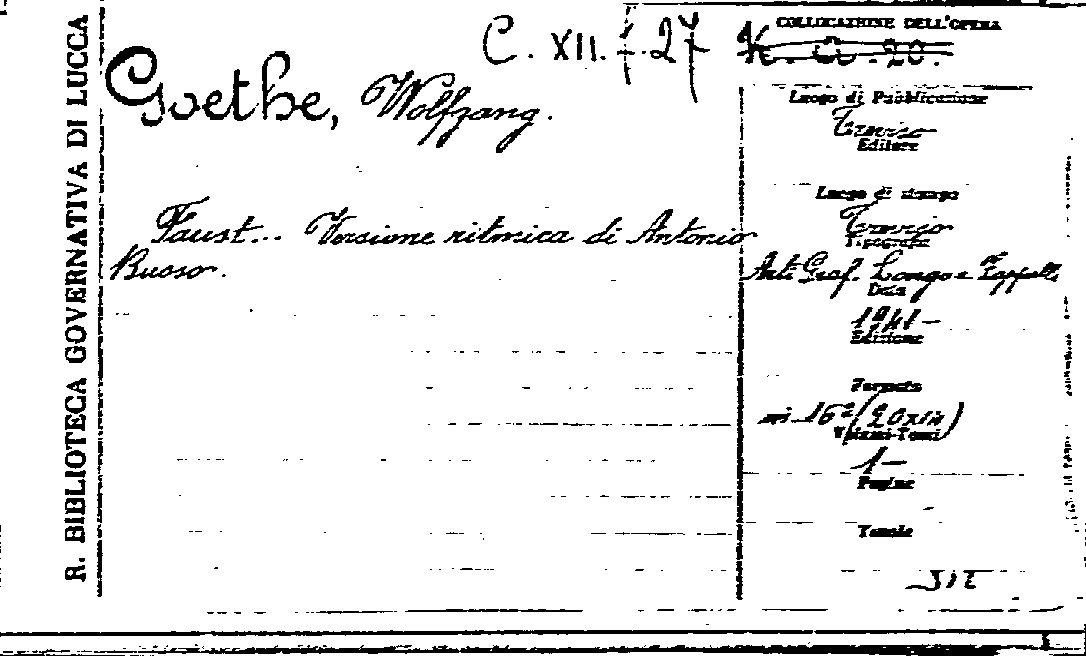 R. BIBLIOTECA GOVERNATIVA DI LUCCA
C. XII. 27
COLLOCAZIONE DELL'OPERA
Goethe, Wolfgang.
Faust... Versione ritmica di Antonio
Buoso.
Luogo di Pubblicazione
Treviso
Editore
Luogo di stampa
Treviso
Tipografia
Arti Graf. Longo e Zoppelli
Data
1941-
Edizione
Formato
in 16º (20x14)
Volumi-Tomi
1-
Pagine
Tavole